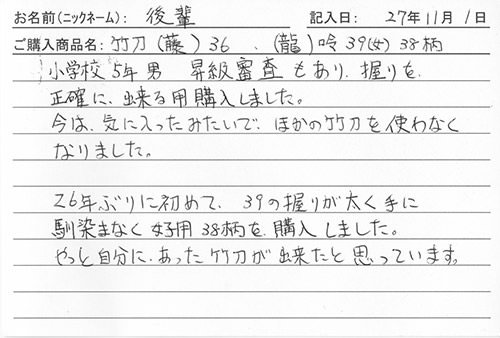 お名前(ニックネーム): 後輩 記入日: 27年11月1日
ご購入商品名: 竹刀(藤)36、(龍)吟39(女)38柄
小学校5年男 昇級審査もあり、握りを、
正確に、出来る用購入しました。
今は、気に入ったみたいで、ほかの竹刀を使わなく
なりました。
26年ぶりに初めて、39の握りが太く手に
馴染まなく女子用38柄を、購入しました。
やっと自分に、あった竹刀が出来たと思っています。